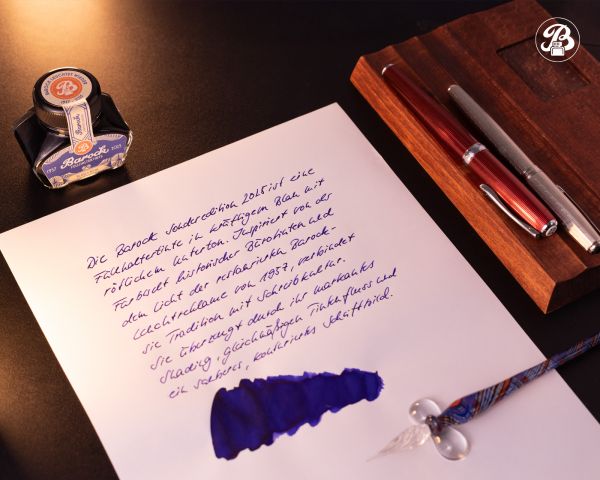 B
BAROCK
1957 2025
Barock
Barock
1957 2025
Die Barock Sonderedition 2025 ist eine
Füllhaltertinte in kräftigem Blau mit
rötlichem Unterton. Inspiriert von der
Farbwelt historischer Bürotinten und
dem Licht der restaurierten Barock-
Leuchtreklame von 1957, verbindet
sie Tradition mit Schreibkultur.
Sie überzeugt durch ihr markantes
Shading, gleichmäßigen Tintenfluss und
ein sauberes, konturiertes Schriftbild.